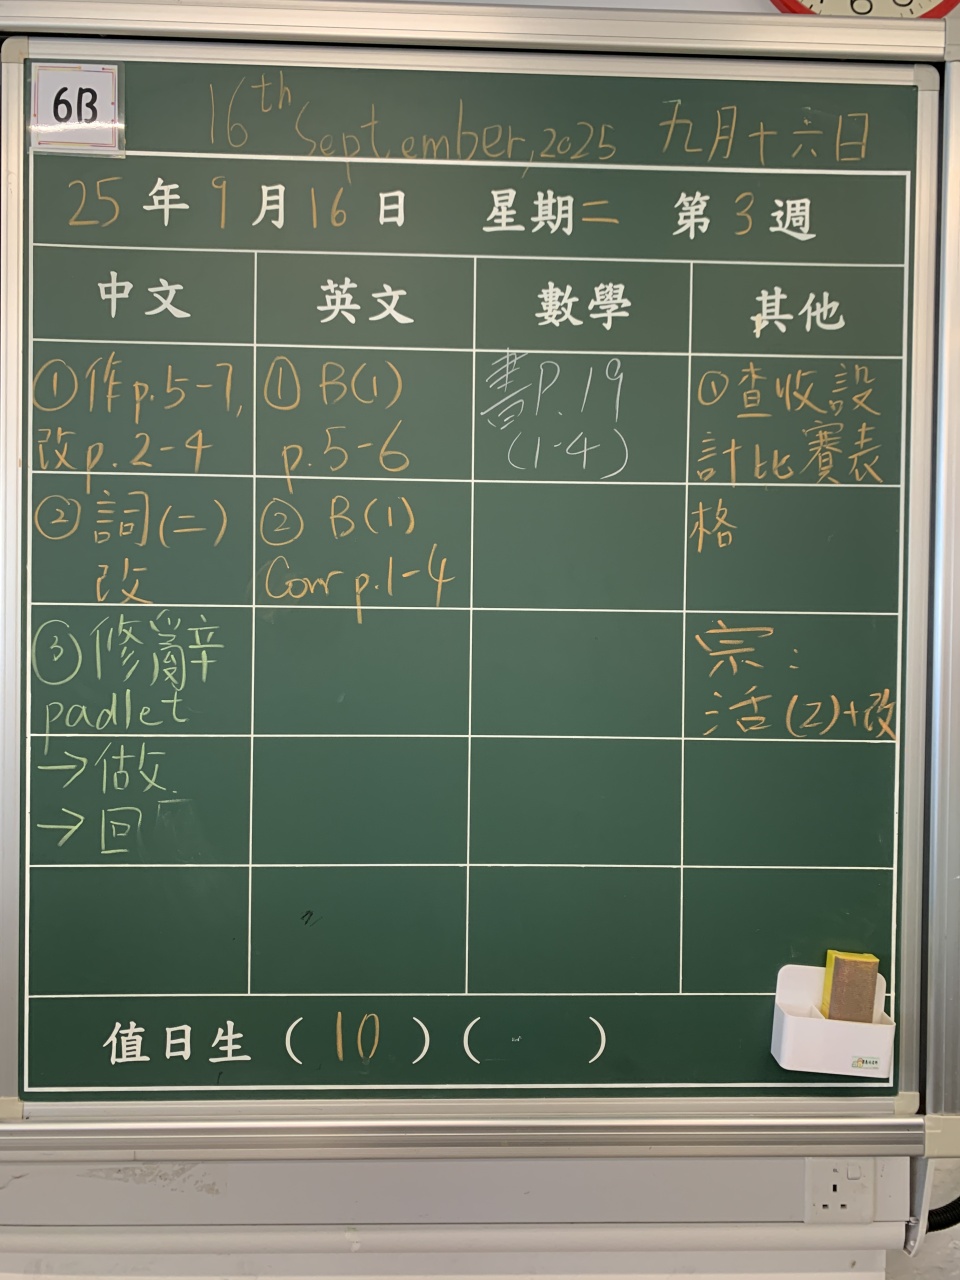 6B
16th September, 2025 九月十六日
25年9月16日 星期二 第3週
中文 英文 數學 其他
①作p.5-7,
改p.2-4
① B(1)
p.5-6
書P.19
(1-4)
①查收設
計比賽表
格
②詞(二)
改
② B(1)
Corr p.1-4
③修辭
padlet
宗:
活(2)+改
→做
→回
值日生(10)( )